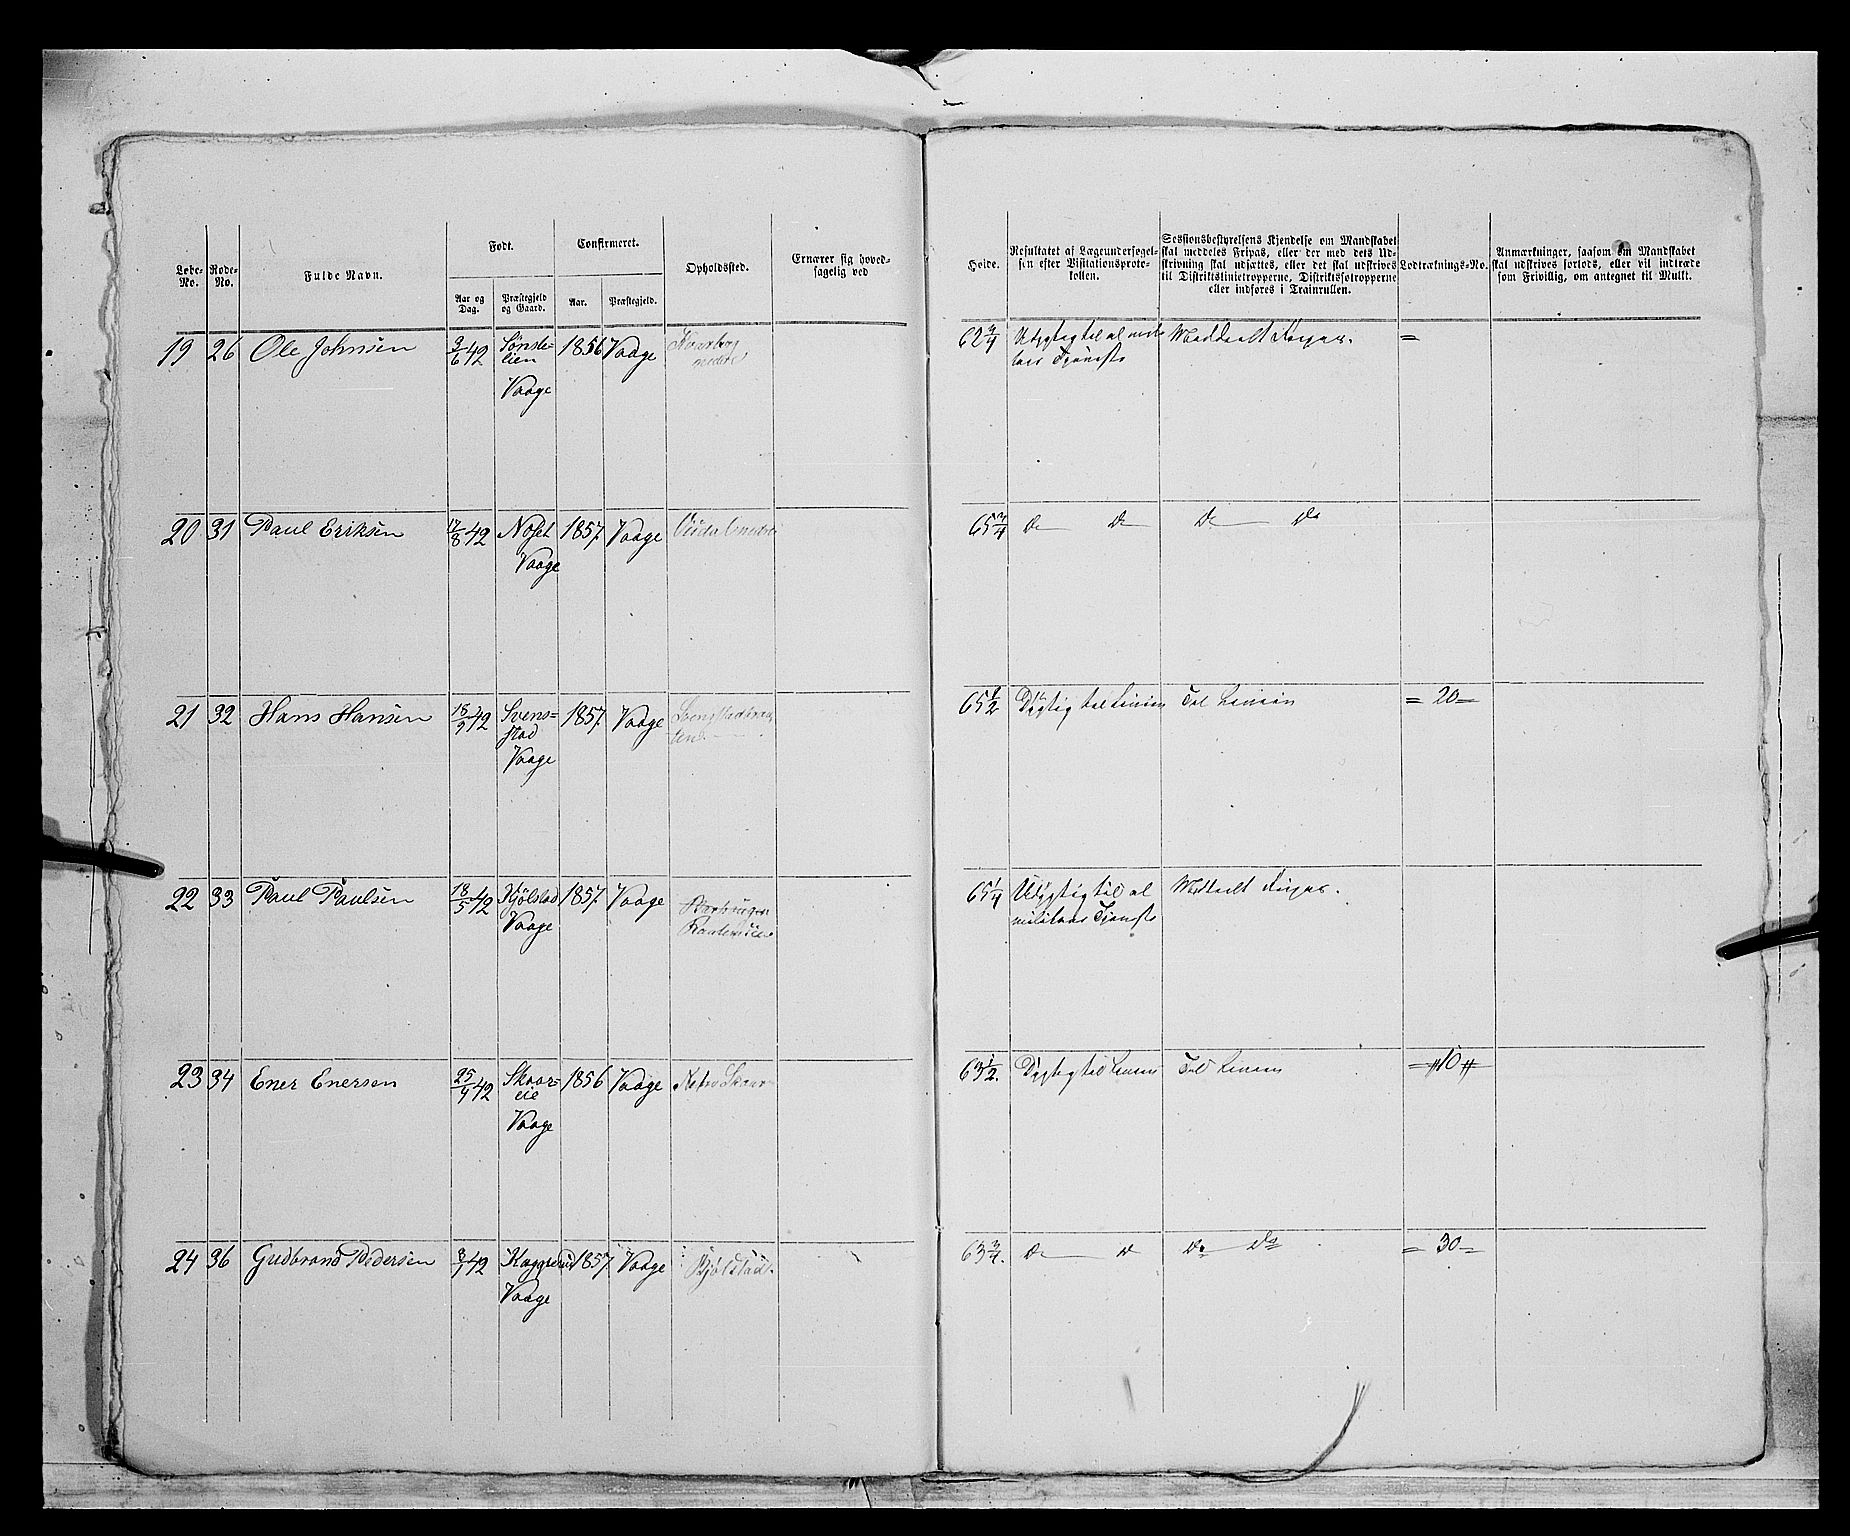 Løbe-No.
Rode-No.
Fulde Navn.
Født.
Aar og Dag.
Præstegjeld og Gaard.
Confirmeret.
Aar.
Præstegjeld.
Opholdssted.
Ernærer sig hoved-
sagelig ved
Høide.
Resultatet af Lægeundersøgel-
sen efter Visitationsproto-
kollen.
Sessionsbestyrelsens Kjendelse om Mandskabet
skal meddeles Fripas, eller der med dets Ud-
skrivning skal udsættes, eller det skal udskrives
til Distriktslinietropperne, Distriktsfotropperne
eller indføres i Trainrullen.
Lodtræknings-No.
Anmærkninger, saasom om Mandskabet
skal udskrives forlods, eller vil indtræde
som Frivillig, om antegnet til Mulkt.
19 26 Ole Johnsen 3/6 42 Sønste- 1856 Vaage 62 3/4 Udygtig til al mili- Meddeelt Fripas. =
lien tair Tjeneste
Vaage
20 31 Paul Eriksen 17/8 42 Noset 1857. Vaage 65 3/4 Do Do Do Do
Vaage
21 32 Hans Hansen 18/9 42 Svens- 1857. Vaage 65 1/2 Dygtig til Linien Til Linien = 20 =
stad
Vaage
22 33 Paul Paulsen 18/5 42 Kjølstad 1857. Vaage 65 1/4 Udygtig til al Meddeelt Fripas.
Vaage militair Tjeneste
23 34 Ener Enersen 25/9 42 Skaar- 1856 Vaage Nedre Skaar 63 1/2. Dygtig til Linien Til Linien = 10 =
eie
Vaage
24 36 Gudbrand Pedersen 3/7 42 1857. Vaage Bjølstad. 63 3/4. Do Do Do Do = 30 =
Vaage